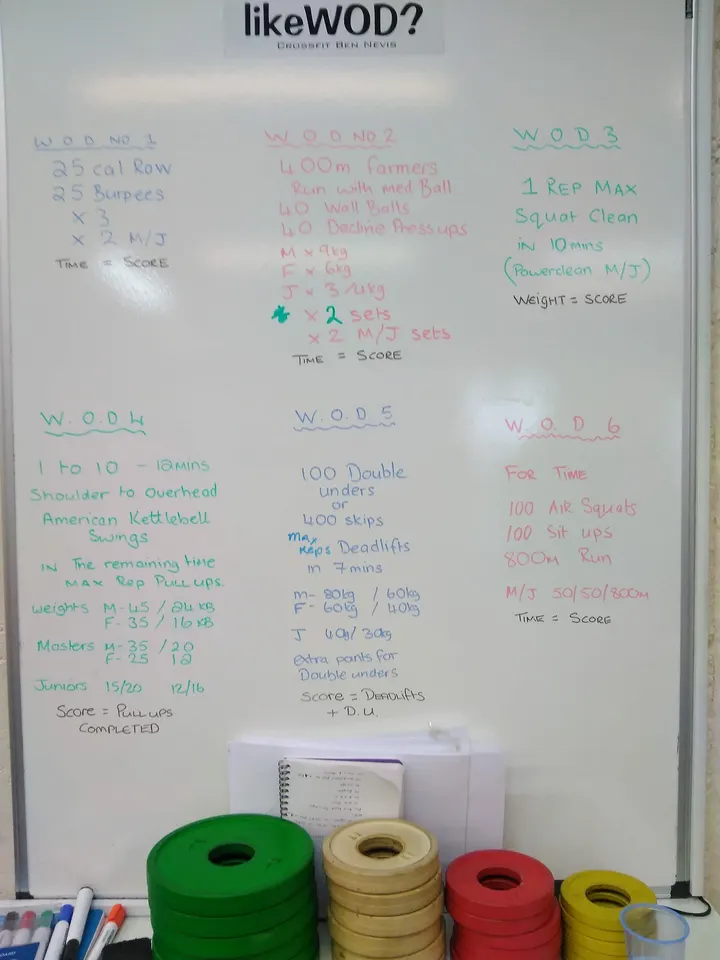 likeWOD?
CROSSFIT BEN NEVIS
W O D NO. 1
25 cal Row
25 Burpees
x 3
x 2 M/J
TIME = SCORE
W O D NO. 2
400m farmers
Run with med Ball
40 Wall Balls
40 Decline Press ups
M x 9kg
F x 6kg
J x 3/4kg
* x 2 sets
x 2 M/J sets
TIME = SCORE
W O D 3
1 REP MAX
Squat Clean
IN 10 mins
(Powerclean M/J)
WEIGHT = SCORE
W. O. D 4
1 to 10 - 12mins
Shoulder to Overhead
American Kettlebell
Swings
IN The remaining time
MAX Rep PULL UPS
weights M-45 / 24 KB
F-35 / 16 KB
Masters M-35 / 20
F-25 12
Juniors 15/20 12/16
SCORE = PULL UPS
COMPLETED
W. O. D 5
100 Double
unders
or
400 skips
max
Reps Deadlifts
in 7mins
m- 80kg / 60kg
F- 60kg / 40kg
J 40/30kg
extra points for
Double unders
SCORE = DEADLIFTS
+ D.U.
W. O. D 6
FOR TIME
100 AIR Squats
100 Sit ups
800m Run
M/J 50/50/800m
TIME = SCORE